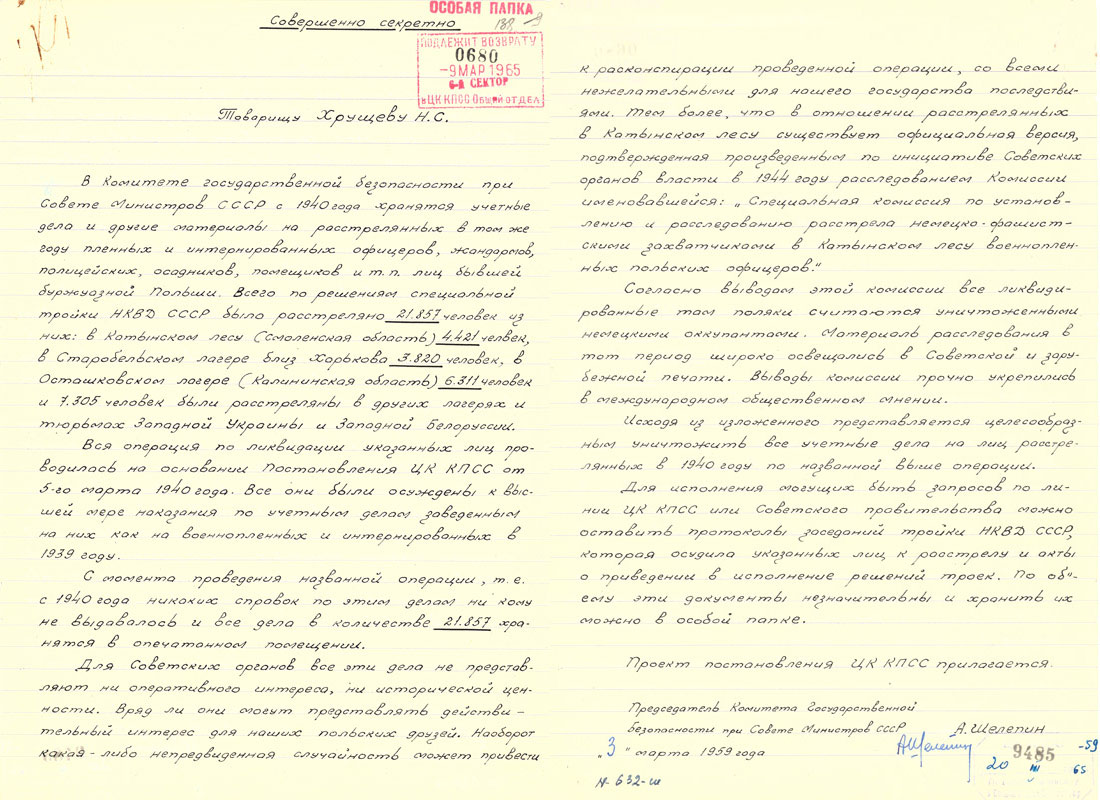 Совершенно секретно
ОСОБАЯ ПАПКА
ПОДЛЕЖИТ ВОЗВРАТУ
0680
-9 МАР 1965
6-й СЕКТОР
в ЦК КПСС Общий отдел
Товарищу Хрущеву Н.С.
В Комитете государственной безопасности при
Совете Министров СССР с 1940 года хранятся учетные
дела и другие материалы на расстрелянных в том же
году пленных и интернированных офицеров, жандармов,
полицейских, осадников, помещиков и т.п. лиц бывшей
буржуазной Польши. Всего по решениям специальной
тройки НКВД СССР было расстреляно 21.857 человек из
них: в Катынском лесу (Смоленская область) 4.421 человек,
в Старобельском лагере близ Харькова 3.820 человек, в
Осташковском лагере (Калининская область) 6.311 человек
и 7.305 человек были расстреляны в других лагерях и
тюрьмах Западной Украины и Западной Белоруссии.
Вся операция по ликвидации указанных лиц про-
водилась на основании Постановления ЦК КПСС от
5-го марта 1940 года. Все они были осуждены к выс-
шей мере наказания по учетным делам заведенным
на них как на военнопленных и интернированных в
1939 году.
С момента проведения названной операции, т.е.
с 1940 года никаких справок по этим делам ни кому
не выдавалось и все дела в количестве 21.857 хра-
нятся в опечатанном помещении.
Для Советских органов все эти дела не представ-
ляют ни оперативного интереса, ни исторической цен-
ности. Вряд ли они могут представлять действи-
тельный интерес для наших польских друзей. Наоборот
какая-либо непредвиденная случайность может привести
к расконспирации проведенной операции, со всеми
нежелательными для нашего государства последстви-
ями. Тем более, что в отношении расстрелянных
в Катынском лесу существует официальная версия,
подтвержденная произведенным по инициативе Советских
органов власти в 1944 году расследованием Комиссии
именовавшейся: „Специальная комиссия по установ-
лению и расследованию расстрела немецко-фашист-
скими захватчиками в Катынском лесу военноплен-
ных польских офицеров."
Согласно выводам этой комиссии все ликвиди-
рованные там поляки считаются уничтоженными
немецкими оккупантами. Материалы расследования в
тот период широко освещались в Советской и зару-
бежной печати. Выводы комиссии прочно укрепились
в международном общественном мнении.
Исходя из изложенного представляется целесообраз-
ным уничтожить все учетные дела на лиц расстре-
лянных в 1940 году по названной выше операции.
Для исполнения могущих быть запросов по ли-
нии ЦК КПСС или Советского правительства можно
оставить протоколы заседаний тройки НКВД СССР,
которая осудила указанных лиц к расстрелу и акты
о приведении в исполнение решений троек. По объ-
ему эти документы незначительны и хранить их
можно в особой папке.
Проект постановления ЦК КПСС прилагается.
Председатель Комитета Государственной
безопасности при Совете Министров СССР А. Шелепин
„3" марта 1959 года
АШелепин
9485
-59
20 III 65
N-632-ш